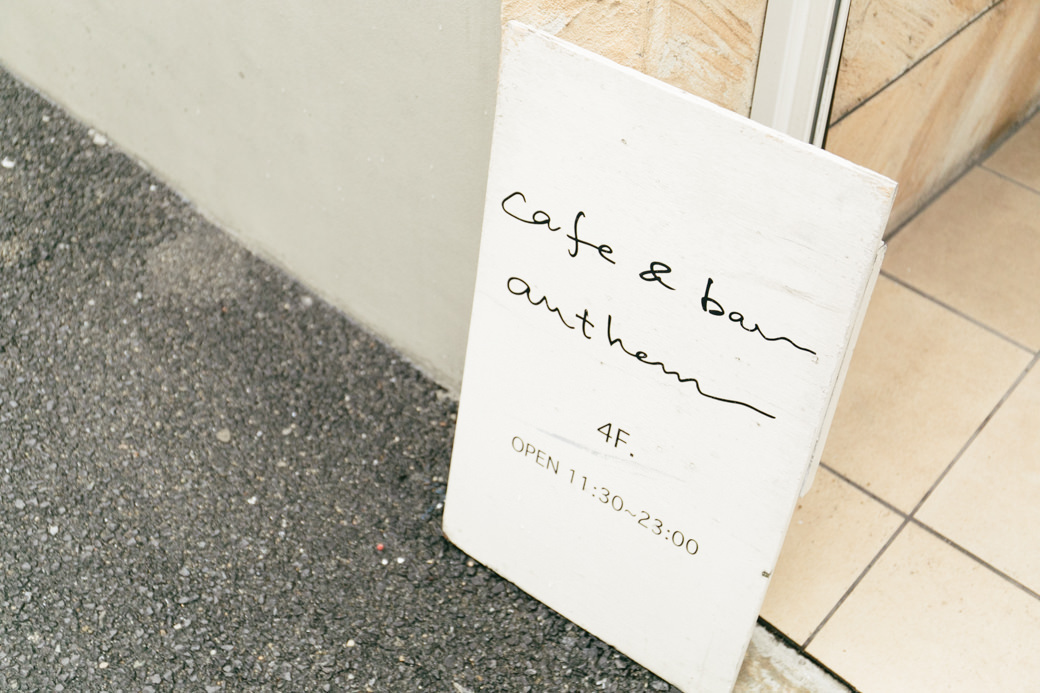 cafe & bar
anthem
4F.
OPEN 11:30~23:00